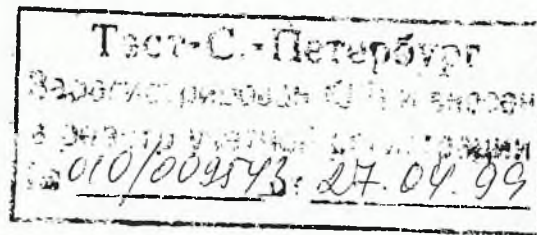 Тест-С.-Петербург
Зарегистрирован и внесен
в реестр учетной регистрации
010/009543 27.04.99